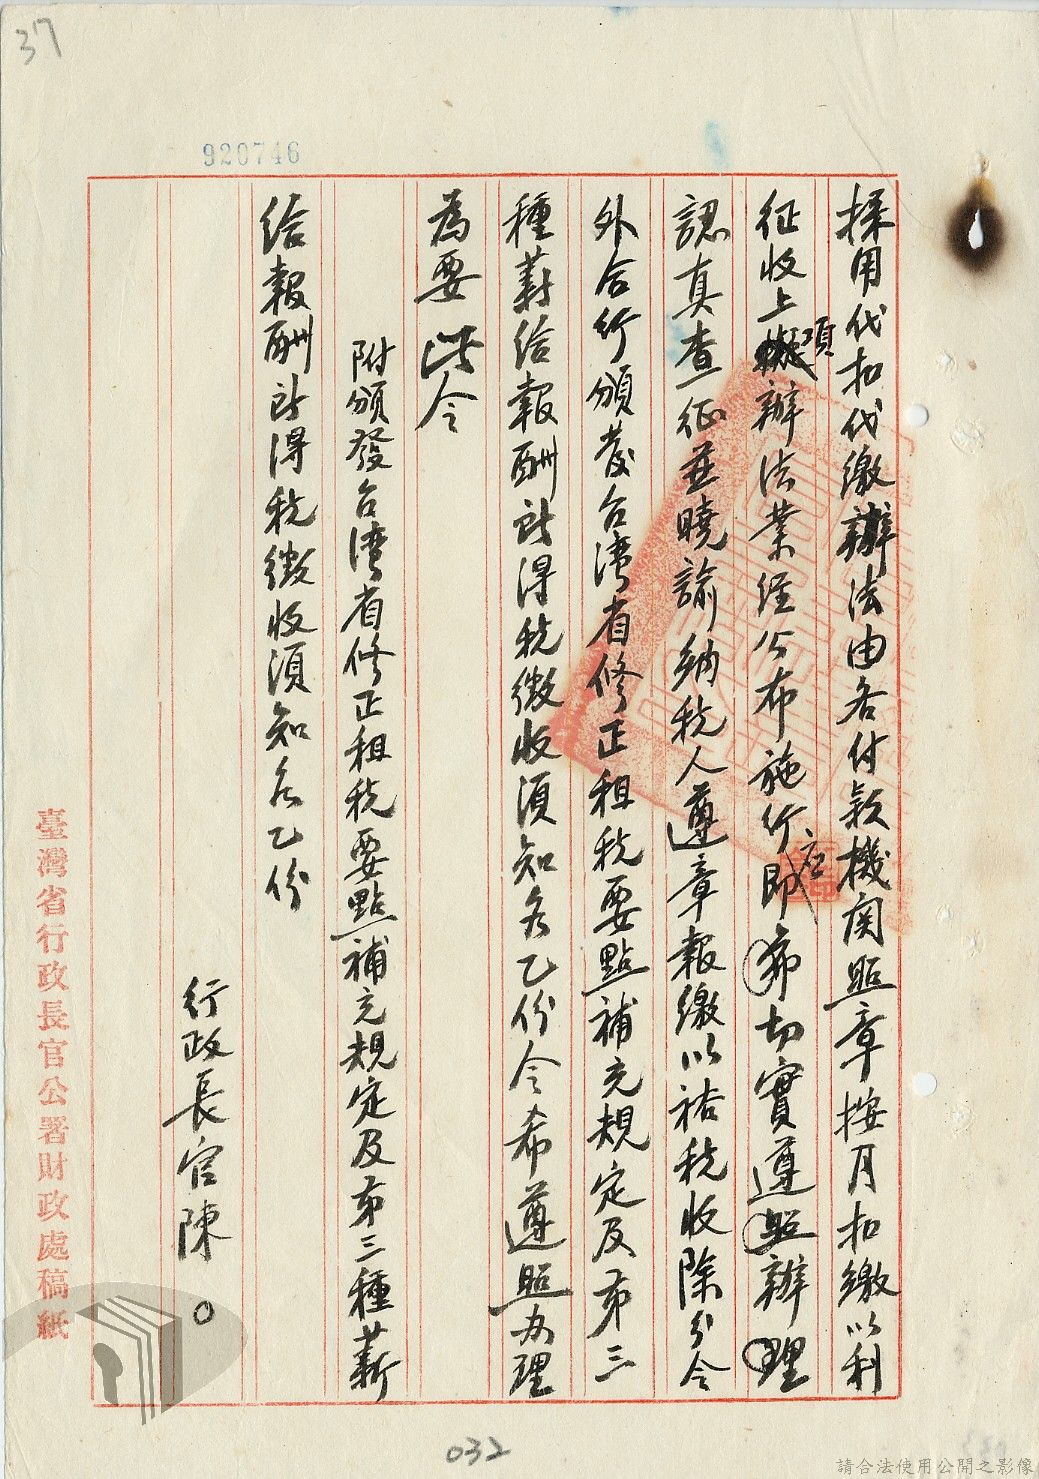 37
920746
採用代扣代繳辦法由各付款機関照章按月扣繳以利
征收上項辦法業経公布施行應切實遵辦
認真查征並曉諭納稅人遵章報繳以裕稅收除分令
外合行頒發台湾省修正租稅要點補充規定及第三
種薪給報酬所得稅徵收須知各乙份令希遵照办理
為要此令
附頒發台湾省修正租稅要點補充規定及第三種薪
給報酬所得稅徵收須知各乙份
行政長官陳○
臺灣省行政長官公署財政處稿紙
032
請合法使用公開之影像